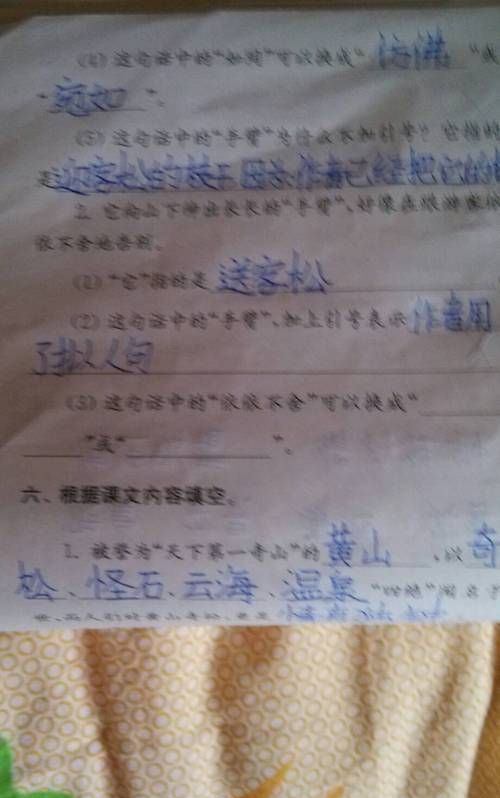 (4) 这句话中的“如同”可以换成“仿佛”或
“宛如”。
(5) 这句话中的“手臂”为什么不加引号？它指的
是迎客松的枝干 因为作者已经把它的
2. 它向山下伸出长长的“手臂”，好像在跟游客
依不舍地告别。
(1) “它”指的是 送客松
(2) 这句话中的“手臂”，加上引号表示 作者用
了拟人句
(3) 这句话中的“依依不舍”可以换成“
”或“ ”。
六、根据课文内容填空。
1. 被誉为“天下第一奇山”的黄山，以奇
松、怪石、云海、温泉“四绝”闻名于